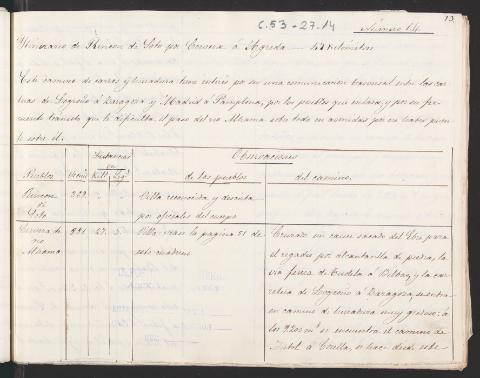 C.53-27.14
13
Número 14.
Itinerario de Rincon de Soto por Cervera á Agreda
Kilómetros
Este camino de carros y herradura tiene interés por ser una comunicacion trasversal entre las car-
de Logroño á Zaragoza y Madrid á Pamplona, por los pueblos que enlaza, y por su fre-
cuente transito que lo dificulta el paso del rio Alhama sobre todo en avenidas por no haber puen-
te sobre él.
Distancias
en
Observaciones
Pueblos
Vecino
Kil.
Leg.
de los pueblos
del camino.
Rincon
de
Soto
Villa reconocida y descrita
por oficiales del cuerpo
Cervera de
rio
Alhama
Villa, vease la pagina 51 de
este cuaderno
Cruzado un cauce sacado del Ebro para
el regadio por alcantarilla de piedra, la
via ferrea de Tudela á Bilbao, y la car-
retera de Logroño á Zaragoza, se entra
en camino de herradura muy
los se encuentra el camino de
á, se hace desde este